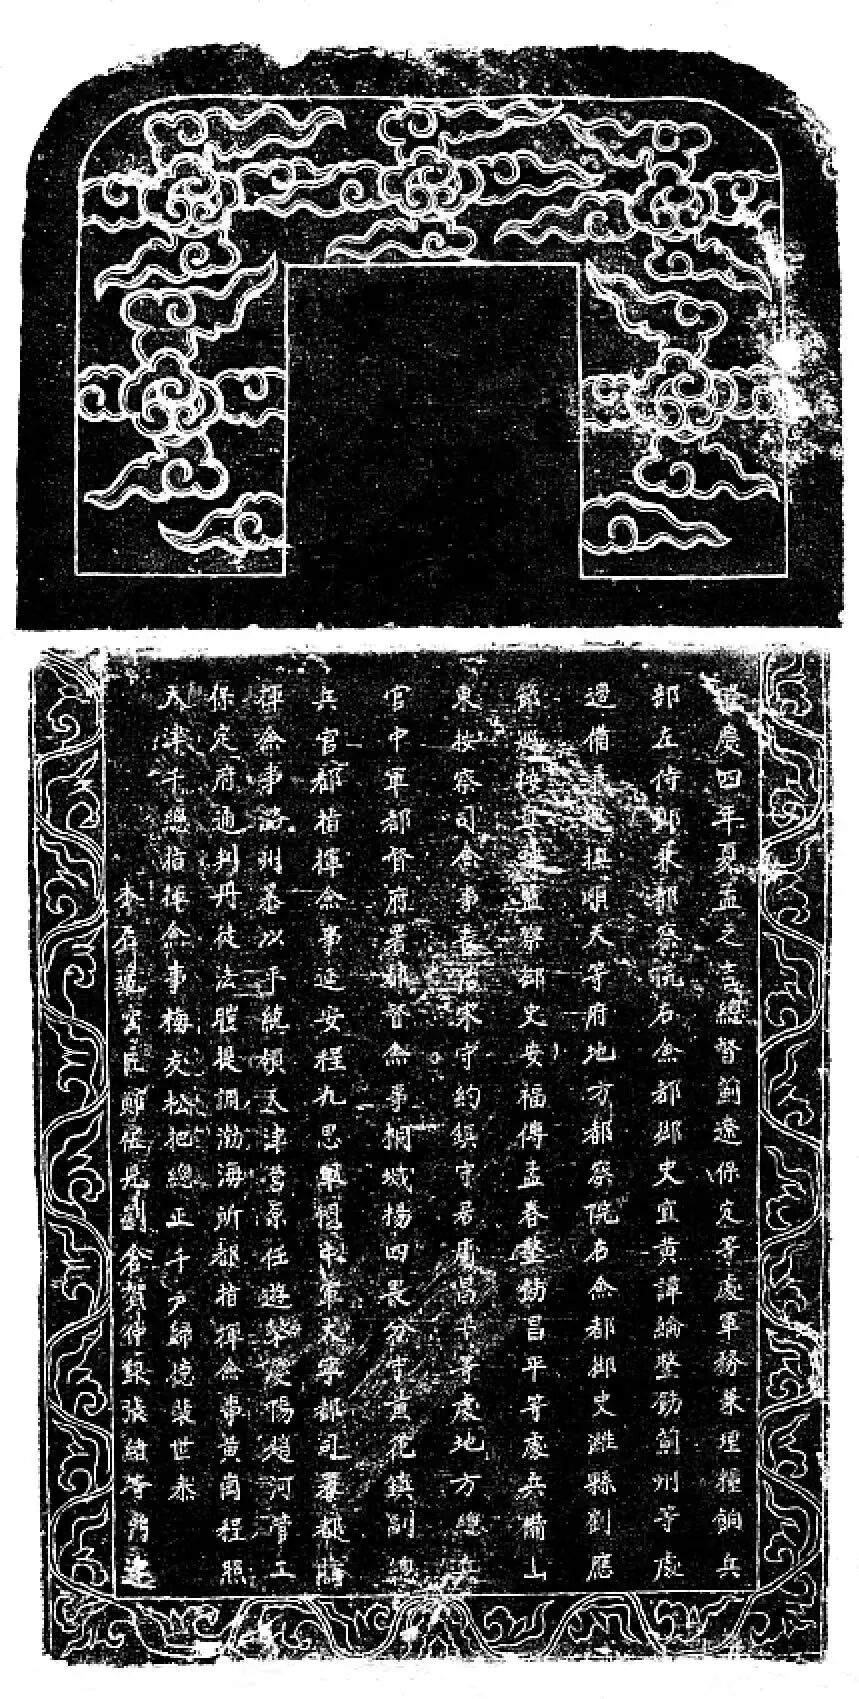 隆慶四年夏孟之吉總督薊遼保定等處軍務兼理糧餉兵
部左侍郎兼都察院右僉都御史宜黃譚綸整飭薊州等處
邊備兼巡撫順天等府地方都察院右僉都御史濰縣劉應
節巡按直隸監察御史安福傅孟春整飭昌平等處兵備山
東按察司僉事宋守約鎮守居庸昌平等處地方總兵
官中軍都督府署都督僉事桐城楊四畏分守黃花鎮副總
兵官都指揮僉事延安程九思中軍大寧都司署都指
揮僉事以平統領天津營原任遊擊慶陽趙河管工
保定府通判丹徒法暟提調渤海所都指揮僉事黃岡程照
天津千總指揮僉事梅友松把總正千戶歸德裴世
木石匠見劉倉賀仲張緒等造